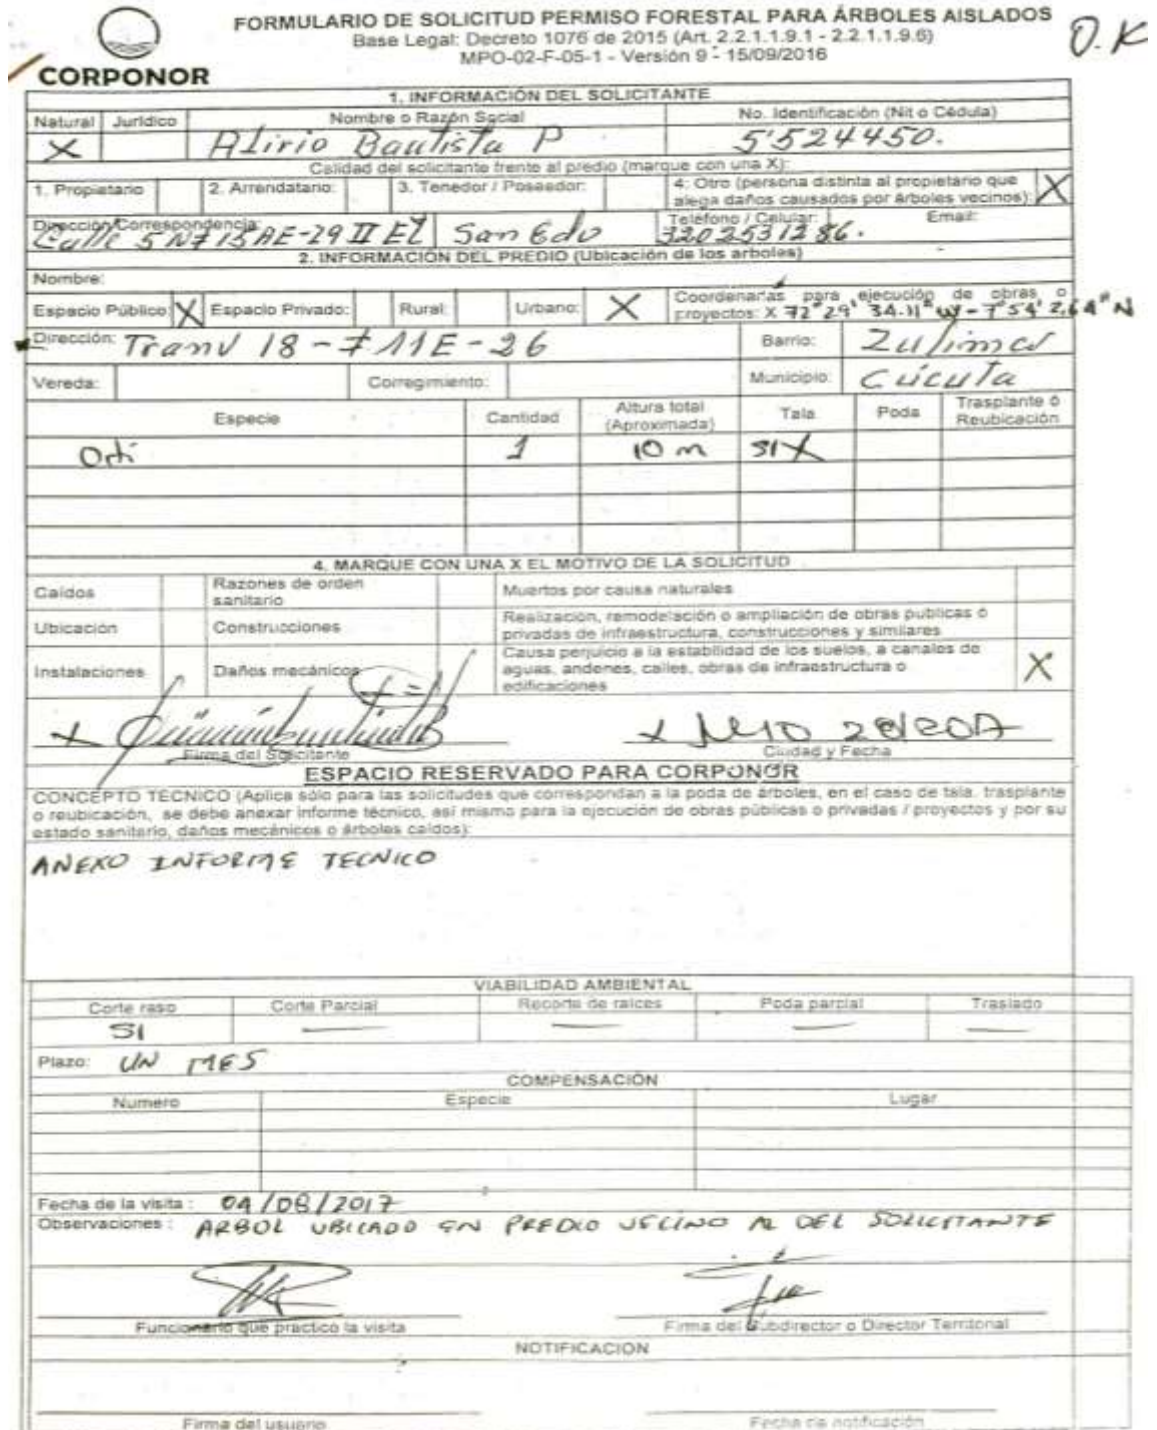 FORMULARIO DE SOLICITUD PERMISO FORESTAL PARA ÁRBOLES AISLADOS
Base Legal: Decreto 1076 de 2015 (Art. 2.2.1.1.9.1 - 2.2.1.1.9.6)
MPO-02-F-05-1 - Versión 9 - 15/09/2016
O.K
CORPONOR
1. INFORMACIÓN DEL SOLICITANTE
Natural Jurídico Nombre o Razón Social No. Identificación (Nit o Cédula)
X Alirio Bautista P 5'524450.
Calidad del solicitante frente al predio (marque con una X):
1. Propietario 2. Arrendatario: 3. Tenedor / Poseedor: 4: Otro (persona distinta al propietario que alega daños causados por árboles vecinos): X
Dirección/Correspondencia: Teléfono / Celular: Email:
Calle 5N# 15AE-29 II El San Edo 3202531286.
2. INFORMACIÓN DEL PREDIO (Ubicación de los arboles)
Nombre:
Espacio Público: X Espacio Privado: Rural: Urbano: X Coordenadas para ejecución de obras o proyectos: X 72°29' 34.11" W - 7°54' 2.64" N
Dirección: Tranv 18 - # 11E - 26 Barrio: Zulima
Vereda: Corregimiento: Municipio: Cúcuta
Especie Cantidad Altura total (Aproximada) Tala Poda Trasplante ó Reubicación
Orti 1 10 m SI X
4. MARQUE CON UNA X EL MOTIVO DE LA SOLICITUD
Caídos Razones de orden sanitario Muertos por causa naturales
Ubicación Construcciones Realización, remodelación o ampliación de obras publicas ó privadas de infraestructura, construcciones y similares
Instalaciones Daños mecánicos Causa perjuicio a la estabilidad de los suelos, a canales de aguas, andenes, calles, obras de infraestructura o edificaciones X
X X
Firma del Solicitante Ciudad y Fecha
ESPACIO RESERVADO PARA CORPONOR
CONCEPTO TÉCNICO (Aplica sólo para las solicitudes que correspondan a la poda de árboles, en el caso de tala, trasplante
o reubicación, se debe anexar informe técnico, así mismo para la ejecución de obras públicas o privadas / proyectos y por su
estado sanitario, daños mecánicos o árboles caídos):
ANEXO INFORME TECNICO
VIABILIDAD AMBIENTAL
Corte raso Corte Parcial Recorte de raíces Poda parcial Traslado
SI — — — —
Plazo: UN MES
COMPENSACIÓN
Numero Especie Lugar
Fecha de la visita : 04/08/2017
Observaciones : ARBOL UBICADO EN PREDIO VECINO AL DEL SOLICITANTE
Funcionario que practico la visita Firma del Subdirector o Director Territorial
NOTIFICACION
Firma del usuario Fecha de notificación